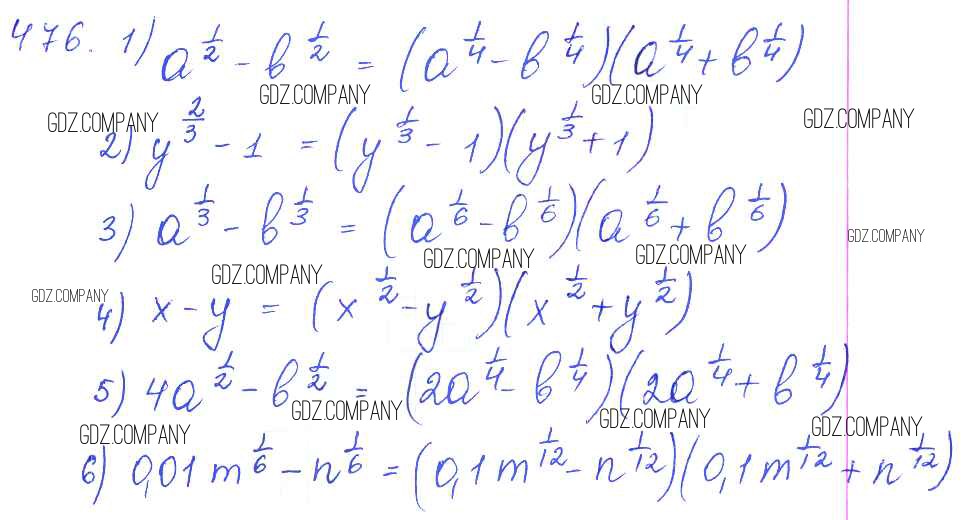 476. 1) a^{1/2} - b^{1/2} = (a^{1/4} - b^{1/4})(a^{1/4} + b^{1/4})
GDZ.COMPANY GDZ.COMPANY
GDZ.COMPANY GDZ.COMPANY
2) y^{2/3} - 1 = (y^{1/3} - 1)(y^{1/3} + 1)
3) a^{1/3} - b^{1/3} = (a^{1/6} - b^{1/6})(a^{1/6} + b^{1/6})
GDZ.COMPANY
GDZ.COMPANY GDZ.COMPANY GDZ.COMPANY
GDZ.COMPANY
4) x - y = (x^{1/2} - y^{1/2})(x^{1/2} + y^{1/2})
5) 4a^{1/2} - b^{1/2} = (2a^{1/4} - b^{1/4})(2a^{1/4} + b^{1/4})
GDZ.COMPANY GDZ.COMPANY
GDZ.COMPANY GDZ.COMPANY
6) 0,01m^{1/6} - n^{1/6} = (0,1m^{1/12} - n^{1/12})(0,1m^{1/12} + n^{1/12})